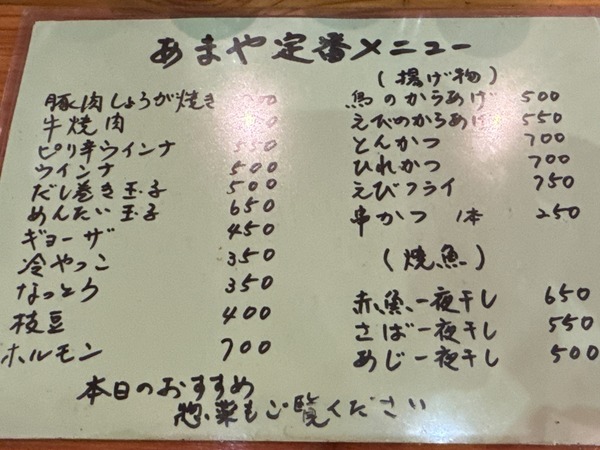 あまや定番メニュー
豚肉しょうが焼き
牛焼肉
ピリ辛ウインナ 550
ウインナ 500
だし巻き玉子 500
めんたい玉子 650
ギョーザ 450
冷やっこ 350
なっとう 350
枝豆 400
ホルモン 700
(揚げ物)
鳥のからあげ 500
えびのからあげ 550
とんかつ 700
ひれかつ 700
えびフライ 750
串かつ 1本 250
(焼魚)
赤魚一夜干し 650
さば一夜干し 550
あじ一夜干し 500
本日のおすすめ
惣菜もご覧ください